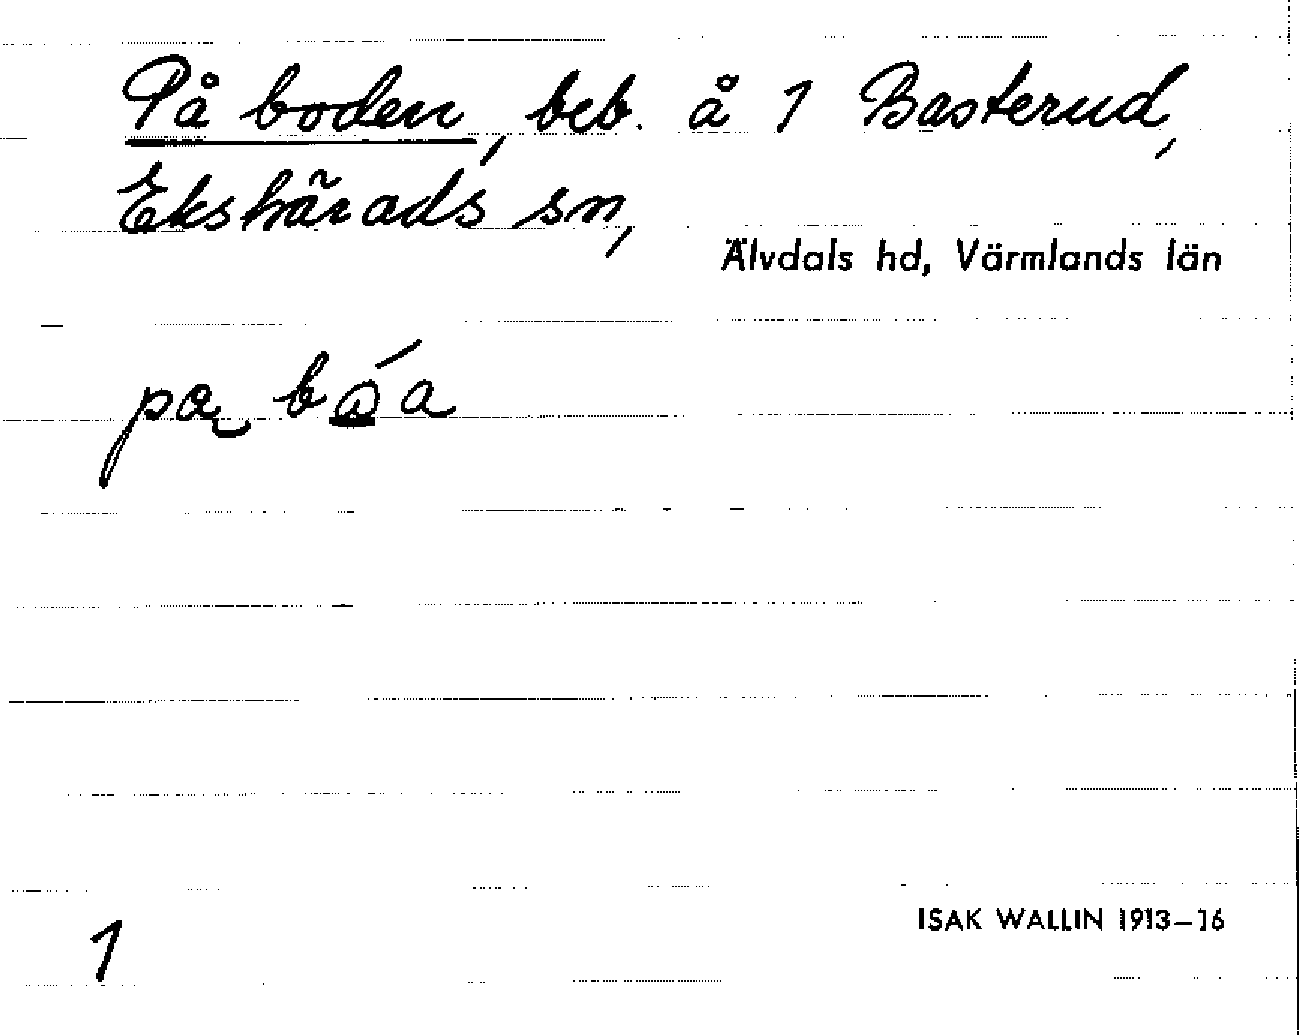 På boden, beb. å 1 Basterud,
Ekshärads sn,
Älvdals hd, Värmlands län
1
ISAK WALLIN 1913–16